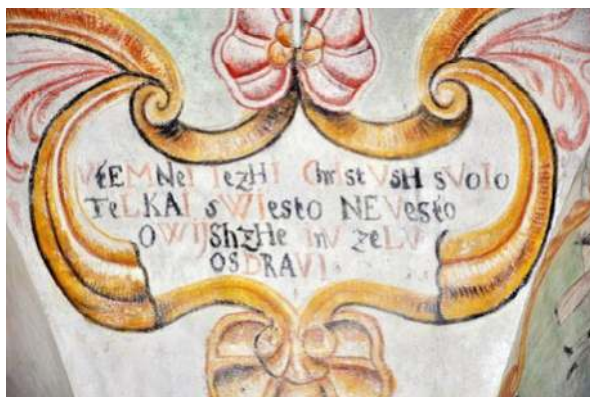 VtEMNeI IezHI ChristVsH sVoIo
TeLKAI sWIesto NEVesto
OWIJShzHe inV zeLV
OSDRAVI